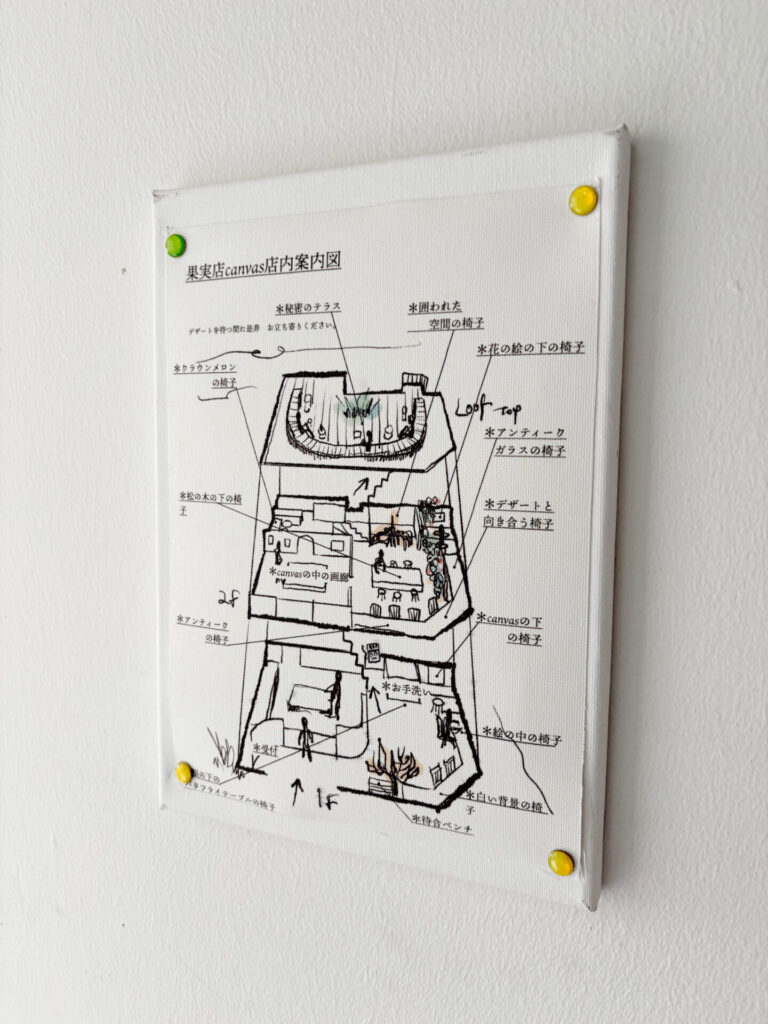 果実店canvas店内案内図
＊秘密のテラス
デザートを待つ間に是非　お立ち寄りください。
＊囲われた
空間の椅子
＊花の絵の下の椅子
＊クラウンメロン
の椅子
Loof Top
＊アンティーク
ガラスの椅子
＊松の木の下の椅
子
＊デザートと
向き合う椅子
＊canvasの中の画廊
2f
＊アンティーク
の椅子
＊canvasの下
の椅子
＊お手洗い
＊絵の中の椅子
＊受付
の下の
バタフライテーブルの椅子
1f
＊白い背景の椅
子
＊待合ベンチ